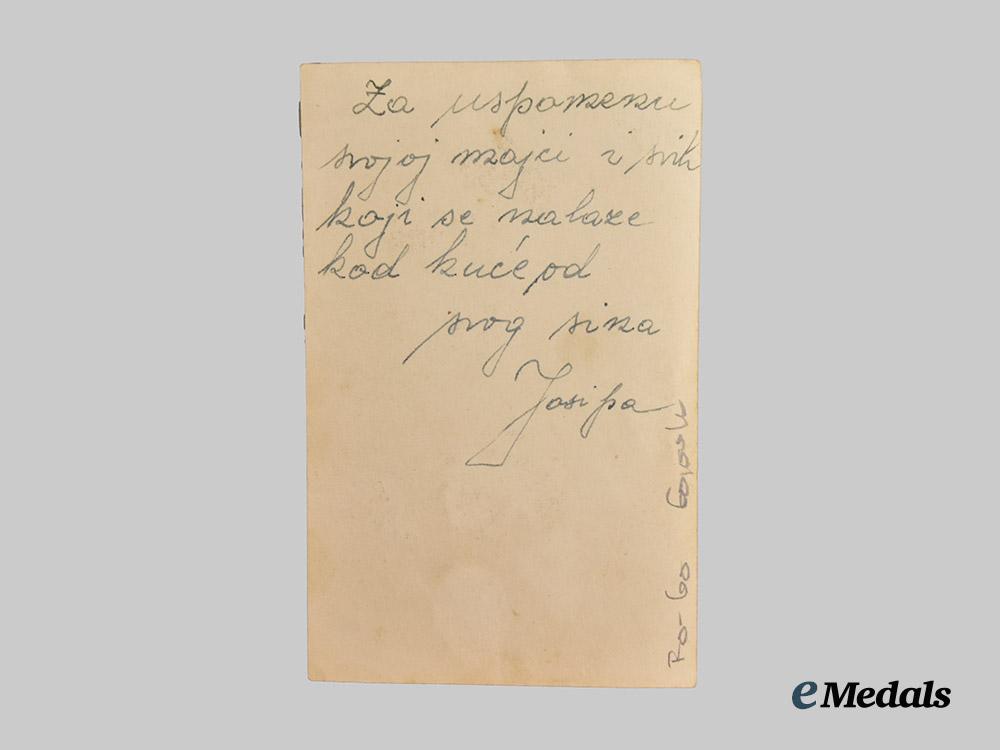 Za uspomenu
svojoj majci i svih
koji se nalaze
kod kuće od
svog sina
Josipa
Ro- 60
eMedals